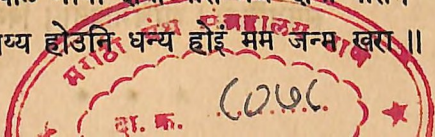 य्य होउनि धन्य होइं मम जन्म खरा ॥
मराठी ग्रंथ संग्रहालय
दा. क्र. ८०७८